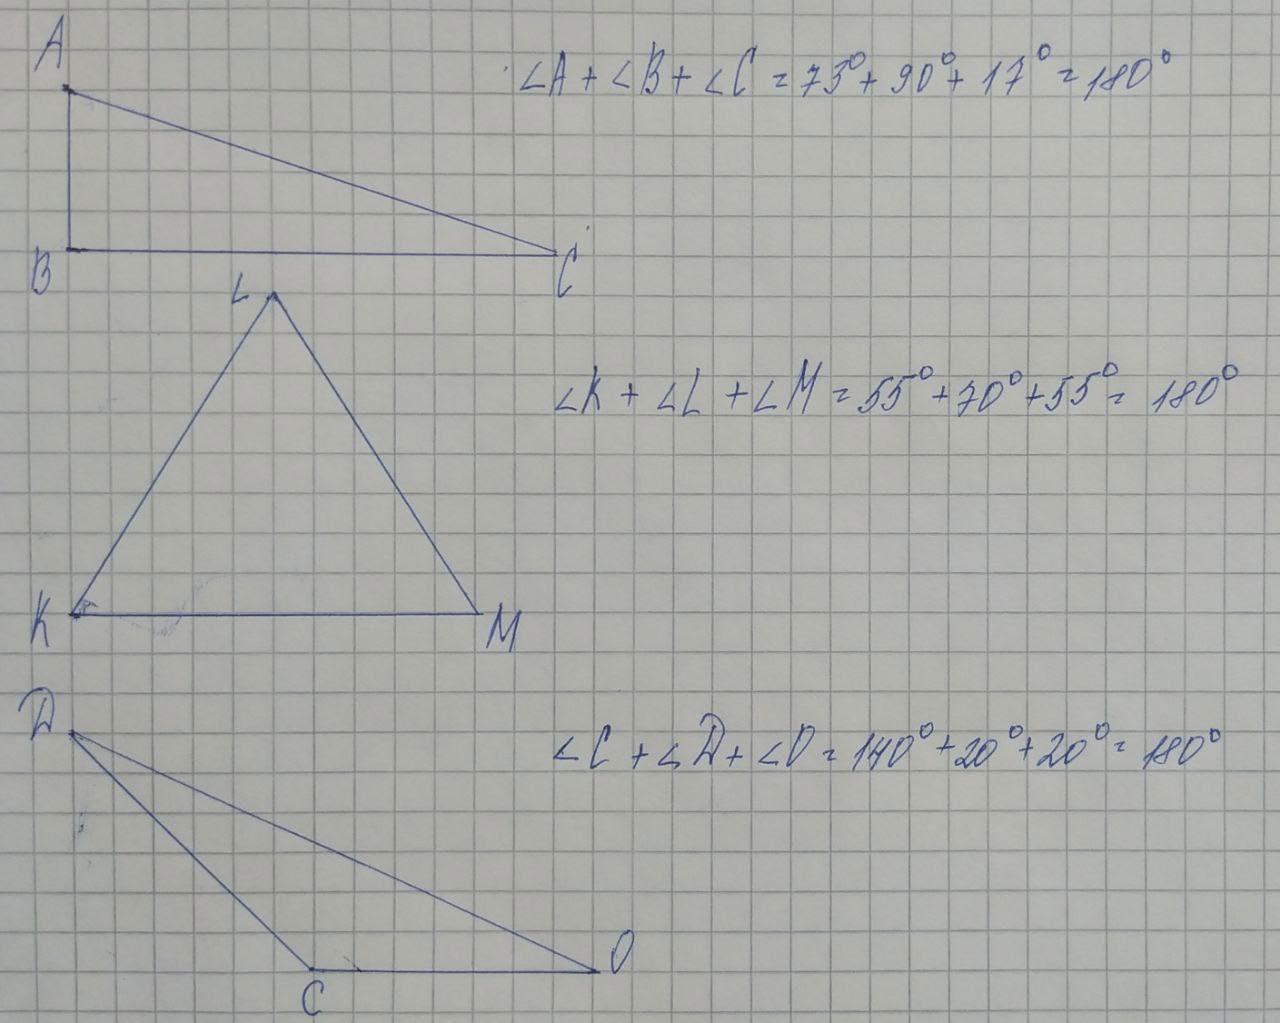 A
∠A + ∠B + ∠C = 73° + 90° + 17° = 180°
B
C
L
∠K + ∠L + ∠M = 55° + 70° + 55° = 180°
K
M
D
∠C + ∠D + ∠O = 140° + 20° + 20° = 180°
O
C